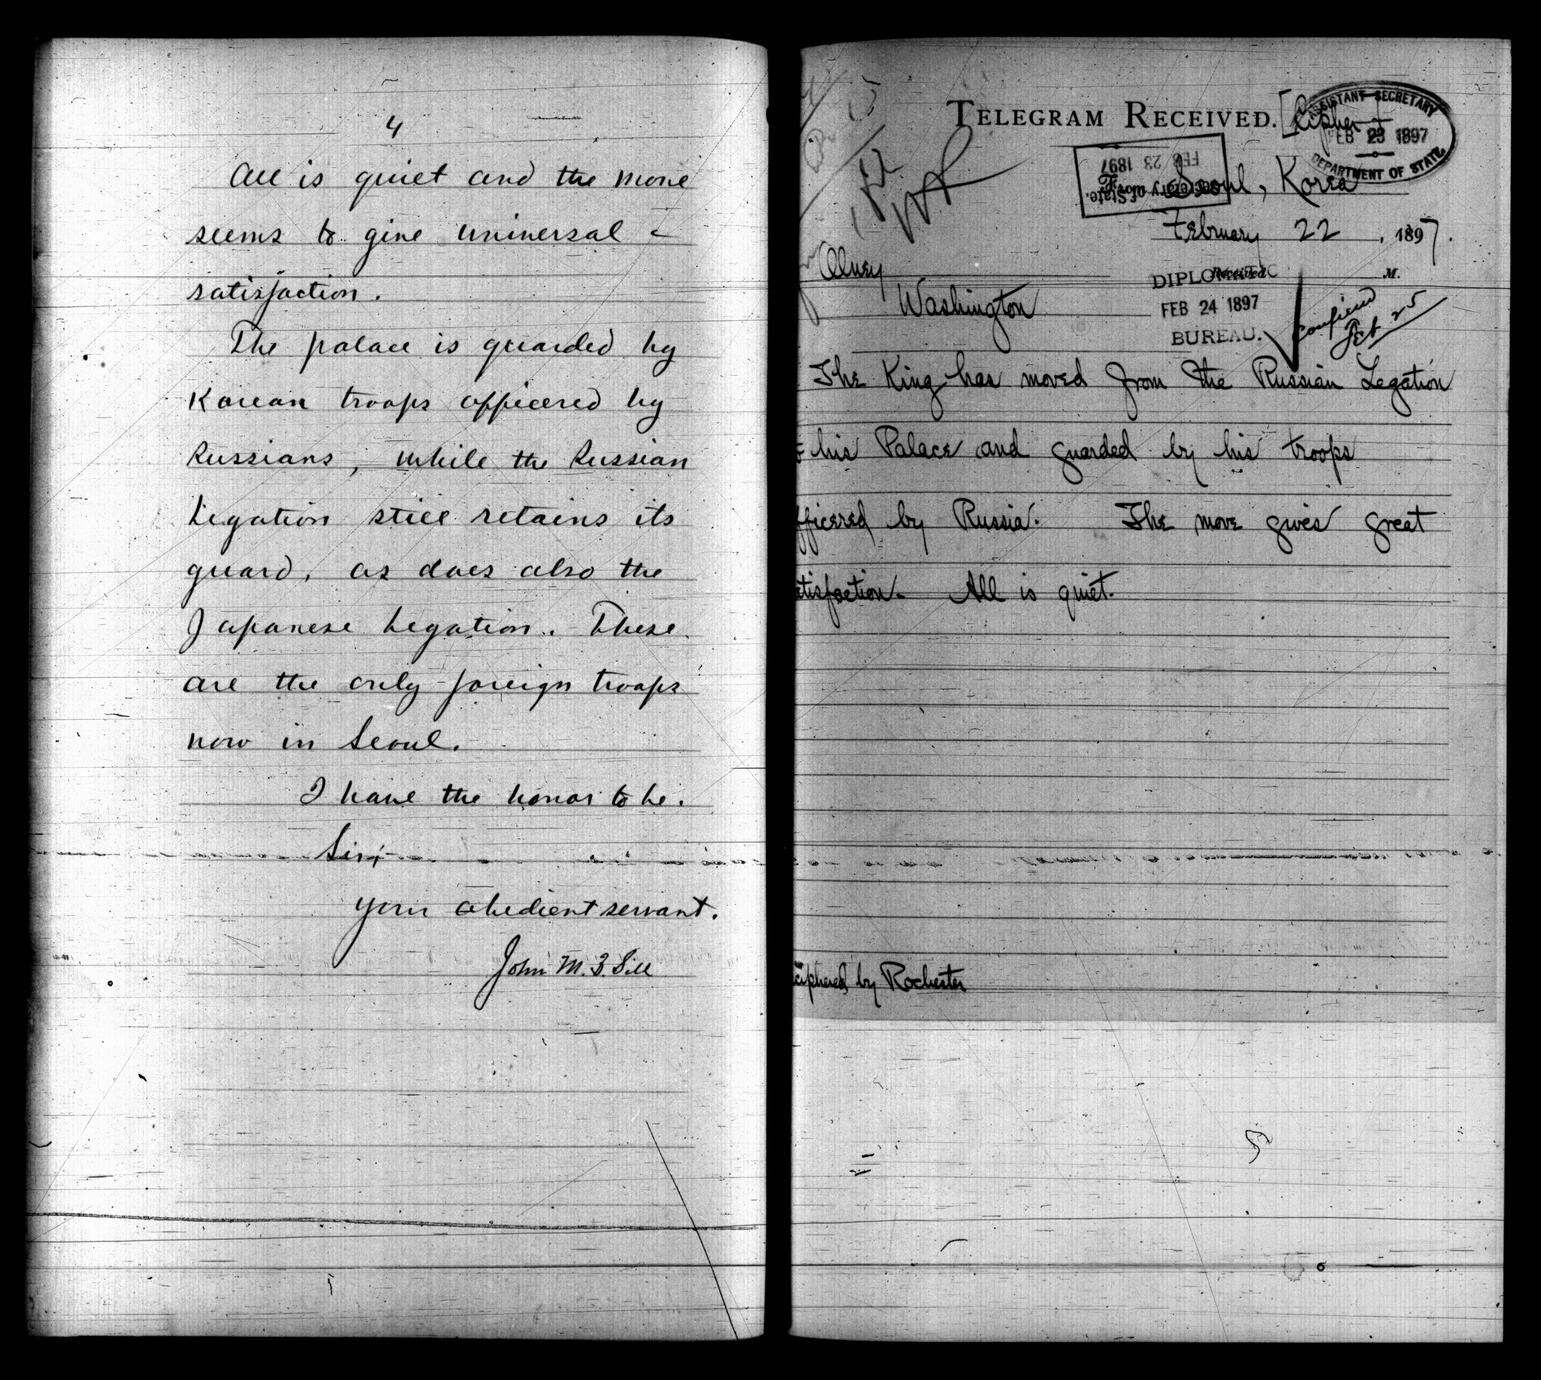 4
All is quiet and the move
seems to give universal
satisfaction.
The palace is guarded by
Korean troops officered by
Russians, while the Russian
Legation still retains its
guard, as does also the
Japanese Legation. These
are the only foreign troops
now in Seoul.
I have the honor to be.
Sir;
Your obedient servant.
John M. B. Sill
TELEGRAM RECEIVED.
[Cipher]
ASSISTANT SECRETARY
FEB 23 1897
DEPARTMENT OF STATE
FEB 23 1897
Seoul, Korea
February 22, 1897.
Olney
Washington
M.
DIPLOMATIC
FEB 24 1897
BUREAU.
confirmed
Feb 25
The King has moved from the Russian Legation
his Palace and guarded by his troops
fficered by Russia. The move gives great
atisfaction. All is quiet.
ciphered by Rochester